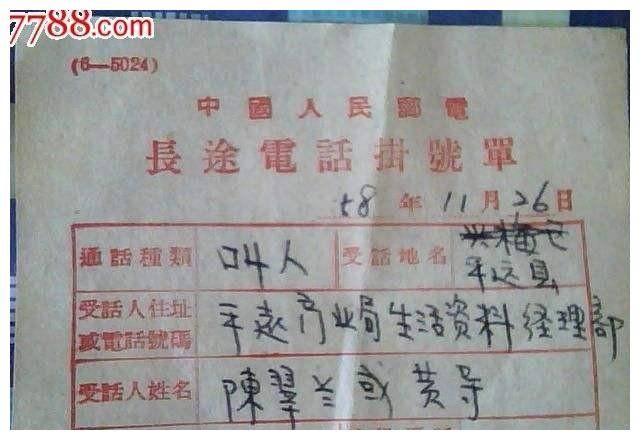 7788.com
(6—5024)
中國人民郵電
長途電話掛號單
58 年 11 月 26 日
通話種類 叫人 受話地名 平远县
受話人住址 平远商业局生活資料经理部
或電話號碼
受話人姓名 陳翠兰或黄